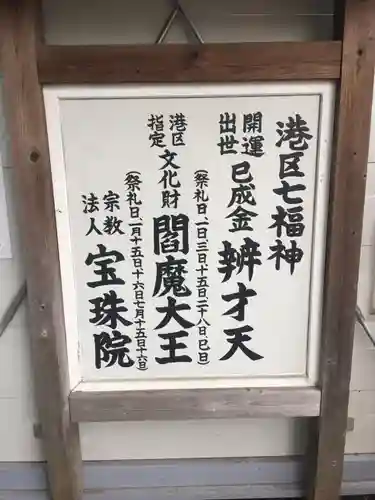 港区七福神
開運
出世
巳成金
辨才天
(祭礼日、一日、三日、十五日、二十八日、巳日)
港区
指定
文化財
閻魔大王
(祭礼日、一月十五日、十六日、七月十五日、十六日)
宗教
法人
宝珠院